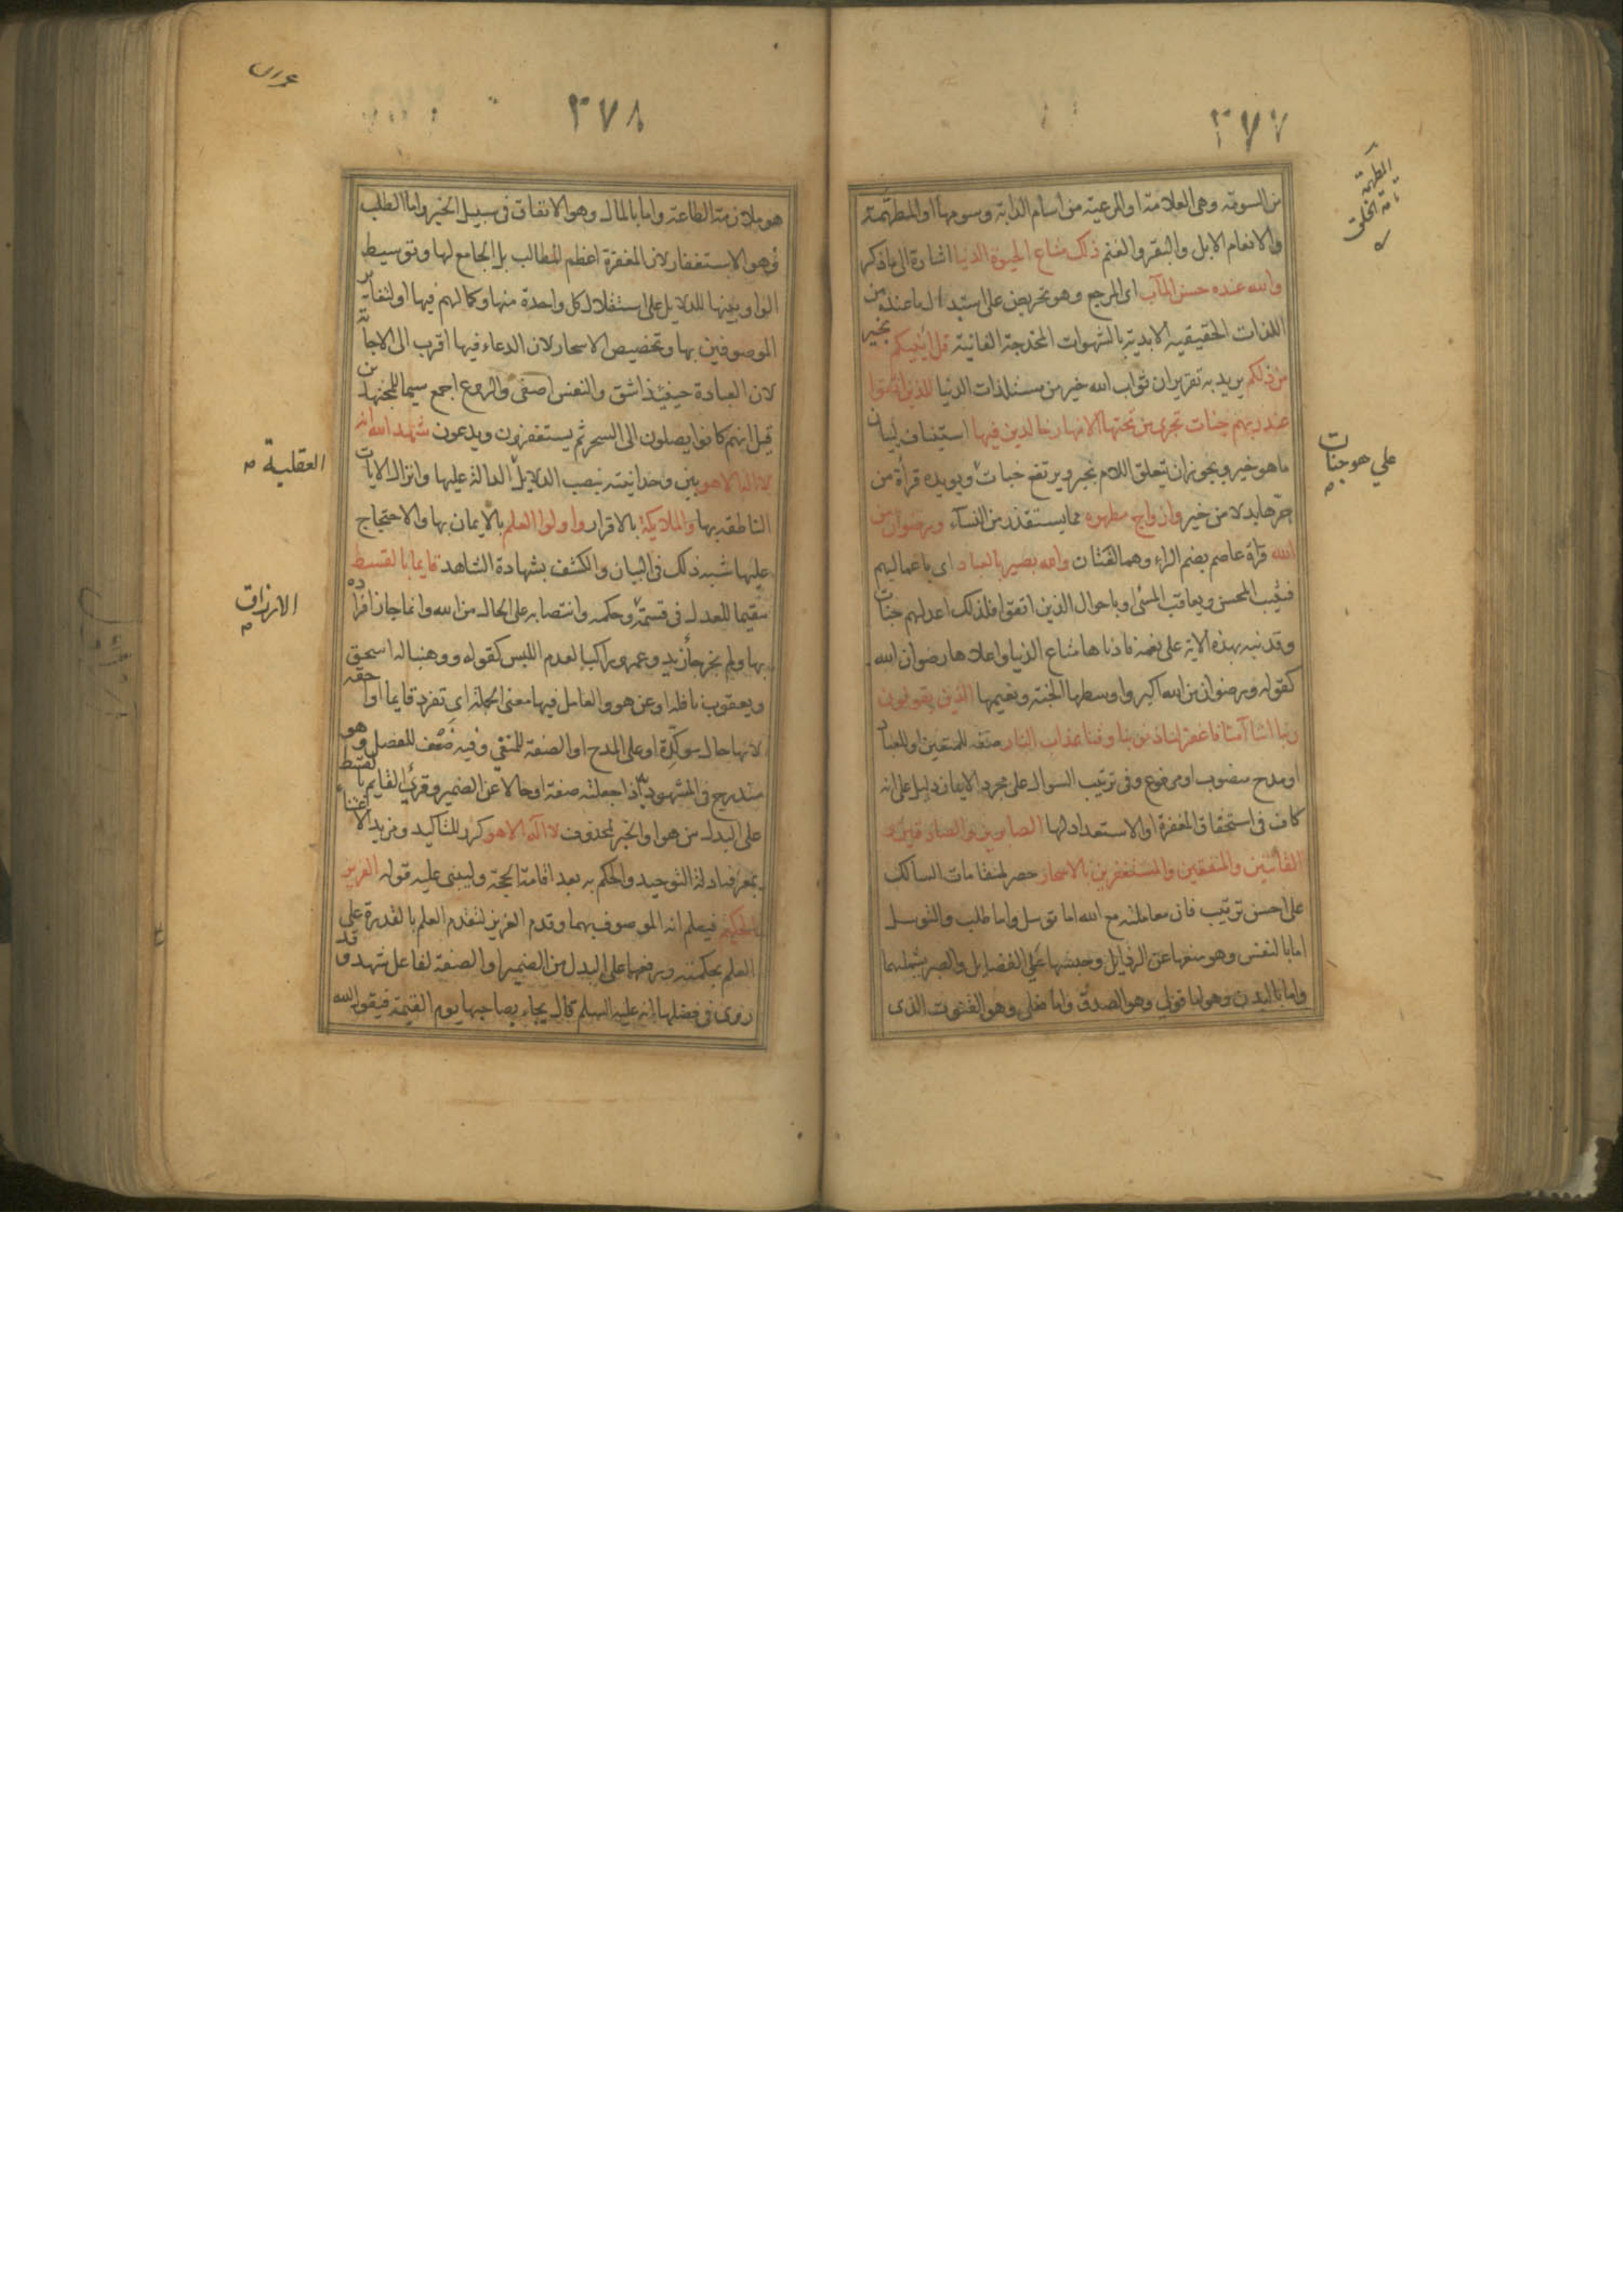 ٣٧٧
المطهمة
تامة الخلق
من السومة وهى العلامة او المرعية من اسام الدابة وسومها او المطهمة
والانعام الابل والبقر والغنم ذلك متاع الحيوة الدنيا اشارة الى ما ذكر
والله عنده حسن المآب اى المرجع وهو تحريض على استبدال ما عنده من
اللذات الحقيقية الابدية بالشهوات المخدجة الفانية قل أؤنبئكم بخير
من ذلكم يريد به تقرير ان ثواب الله خير من مستلذات الدنيا للذين اتقوا
عند ربهم جنات تجرى من تحتها الانهار خالدين فيها استيناف لبيان
ما هو خير ويجوز ان يتعلق اللام بخير ويرتفع جنات ويويده قرأة من
على هو جنات
جرها بدلا من خير وازواج مطهره مما يستقذر من النسآء ورضوان من
الله قرأة عاصم بضم الراء وهما لغتان والله بصير بالعباد اى باعمالهم
فيثيب المحسن ويعاقب المسئ او باحوال الذين اتقوا فلذلك اعد لهم جنات
وقد نبه بهذه الاية على نعمه فادناها متاع الدنيا واعلاها رضوان الله
كقوله ورضوان من الله اكبر واوسطها الجنة ونعيمها الذين يقولون
ربنا اننا آمنا فاغفر لنا ذنوبنا وقنا عذاب النار صفة للمتقين او للعباد
او مدح منصوب او مرفوع وفى ترتيب السوال على مجرد الايمان دليل على انه
كاف فى استحقاق المغفرة او الاستعداد لها الصابرين والصادقين و
القانتين والمنفقين والمستغفرين بالاسحار حصر لمقامات السالك
على احسن ترتيب فان معاملته مع الله اما توسل واما طلب والتوسل
اما بالنفس وهو منعها عن الرذايل وحبسها على الفضايل والصبر يشملهما
واما بالبدن وهو اما قولى وهو الصدق واما فعلى وهو القنوت الذى
٣٧٨
هو ملازمة الطاعة واما بالمال وهو الانفاق فى سبيل الخير واما الطلب
فهو الاستغفار لان المغفرة اعظم المطالب بل الجامع لها وتوسيط
الواو بينها للدلايل على استقلال كل واحدة منها وكمالهم فيها او لتغاير
الموصوفين بها وتخصيص الاسحار لان الدعاء فيها اقرب الى الاجابة
لان العبادة حينئذ اشق والنفس اصفى والروع اجمع سيما للمجتهدين
قيل انهم كانوا يصلون الى السحر ثم يستغفرون ويدعون شهد الله انه
لا اله الا هو بين وحدانيته بنصب الدلايل الدالة عليها وانزال الايات
العقلية
الناطقه بها والملايكة بالاقرار واولوا العلم بالايمان بها والاحتجاج
عليها شبه ذلك فى البيان والكشف بشهادة الشاهد قايما بالقسط
مقيما للعدل فى قسمته وحكمه وانتصابه على الحال من الله وانما جاز افراده
الارزاق
بها ولم يخر جأ زيد وعمرو راكبا لعدم اللبس كقوله ووهبنا له اسحق
ويعقوب نافلة او عن هو والعامل فيها معنى الجملة اى تفرد قايما او احقه
لانها حال موكدة او على المدح او الصفة للمنفى وفيه ضعف للفصل وهو
مندرج فى المشهود به اذا جعلته صفة او حالا عن الضمير وقرئ القايم بالقسط
على البدل من هو او الخبر لمحذوف لا اله الا هو كرر للتاكيد ومزيد الاعتناء
بمعرفة ادلة التوحيد والحكم به بعد اقامة الحجة وليبنى عليه قوله العزيز
الحكيم فيعلم انه الموصوف بهما وقدم العزيز لتقدم العلم بالقدرة على
العلم بحكمته ورفعهما على البدل من الضمير او الصفة لفاعل شهد وقد
روى فى فضلها انه عليه السلم قال يجاء بصاحبها يوم القيمة فيقول الله